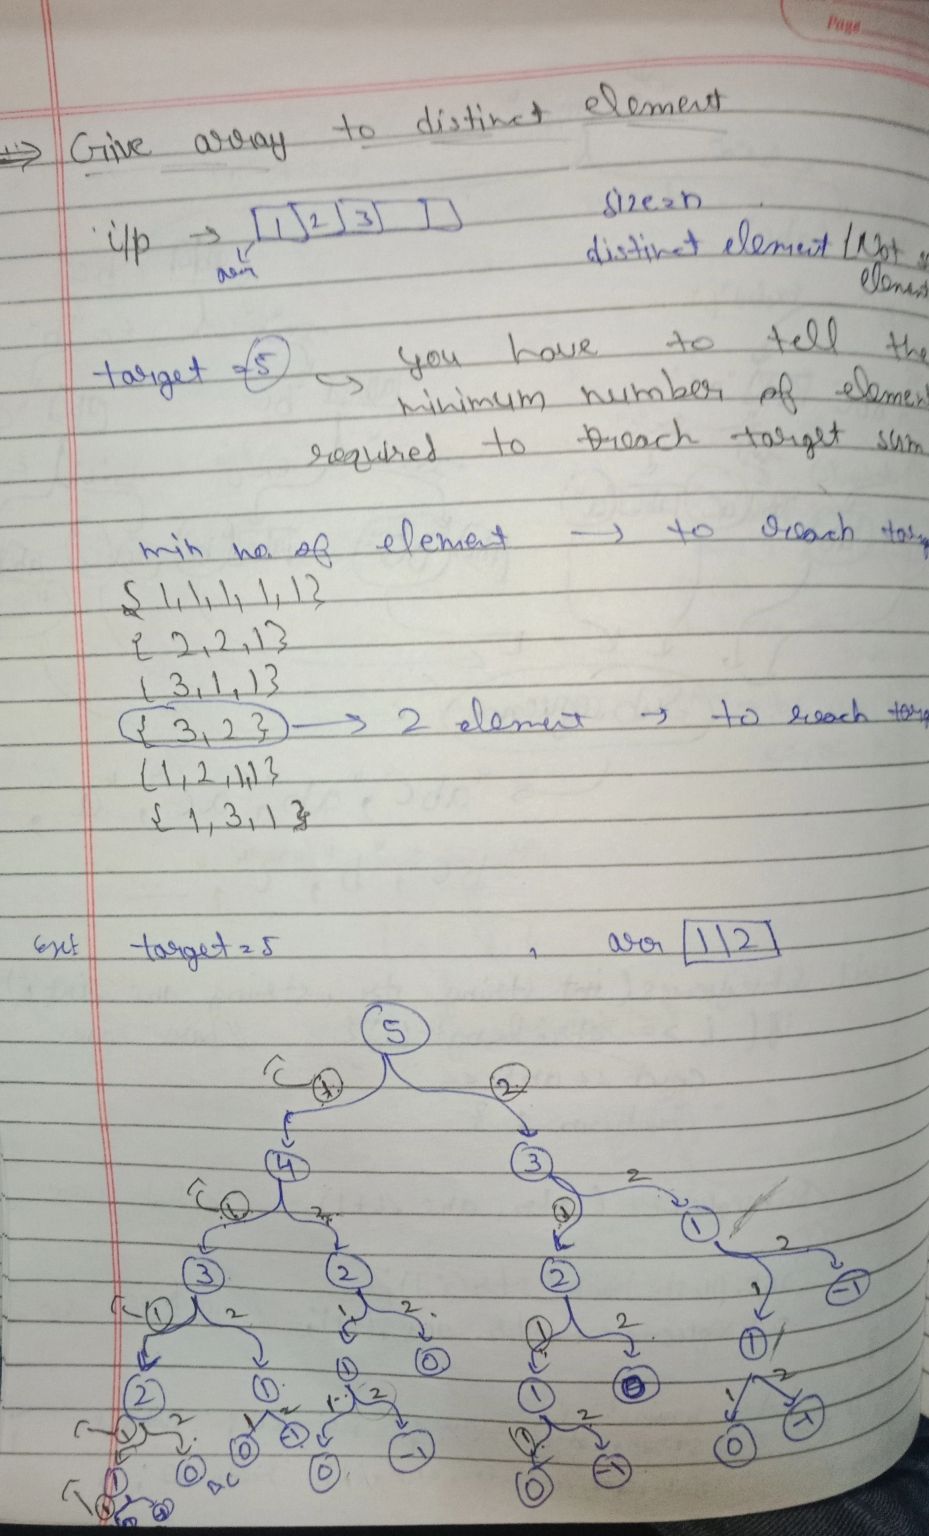 Page
⇒ Give array to distinct element
i/p → [1|2|3| ] size=n
arr distinct element (Not
element
target = 5 → you have to tell the
minimum number of element
required to reach target sum
min no. of element → to reach
{ 1,1,1,1,1}
{ 2,2,1}
{ 3,1,1}
{ 3,2} → 2 element → to reach
{1,2,1,1}
{ 1,3,1}
target = 5 , arr [1|2]
5
1 2
4 3
1 2 1 2
3 2 2 1
1 2 1 2 1 2 1 2
2 1 1 0 1 0 1 -1
1 2 1 2 1 2 1 2 1 2
1 0 0 -1 0 -1 0 -1 0 -1